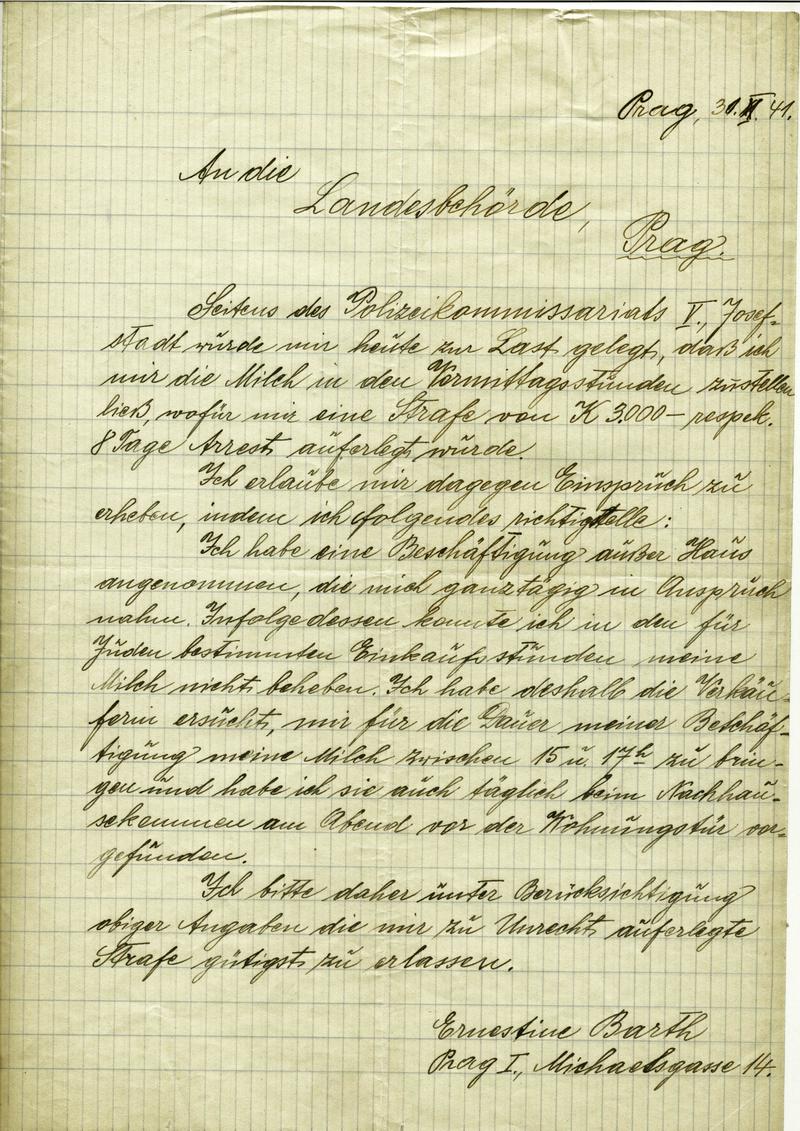 Prag, 30. XI. 41.
An die
Landesbehörde,
Prag.
Seitens des Polizeikommissariats V., Josef-
stadt wurde mir heute zur Last gelegt, daß ich
mir die Milch in den Vormittagsstunden zustellen
ließ, wofür mir eine Strafe von K 3.000 – respek.
8 Tage Arrest auferlegt wurde.
Ich erlaube mir dagegen Einspruch zu
erheben, indem ich folgendes richtigstelle:
Ich habe eine Beschäftigung außer Haus
angenommen, die mich ganztägig in Anspruch
nahm. Infolgedessen konnte ich in den für
Juden bestimmten Einkaufsstunden meine
Milch nicht beheben. Ich habe deshalb die Verkäu-
ferin ersucht, mir für die Dauer meiner Beschäf-
tigung meine Milch zwischen 15 u. 17h zu brin-
gen und habe ich sie auch täglich beim Nachhau-
sekommen am Abend vor der Wohnungstür vor-
gefunden.
Ich bitte daher unter Berücksichtigung
obiger Angaben die mir zu Unrecht auferlegte
Strafe gütigst zu erlassen.
Ernestine Barth
Prag I., Michaelsgasse 14.